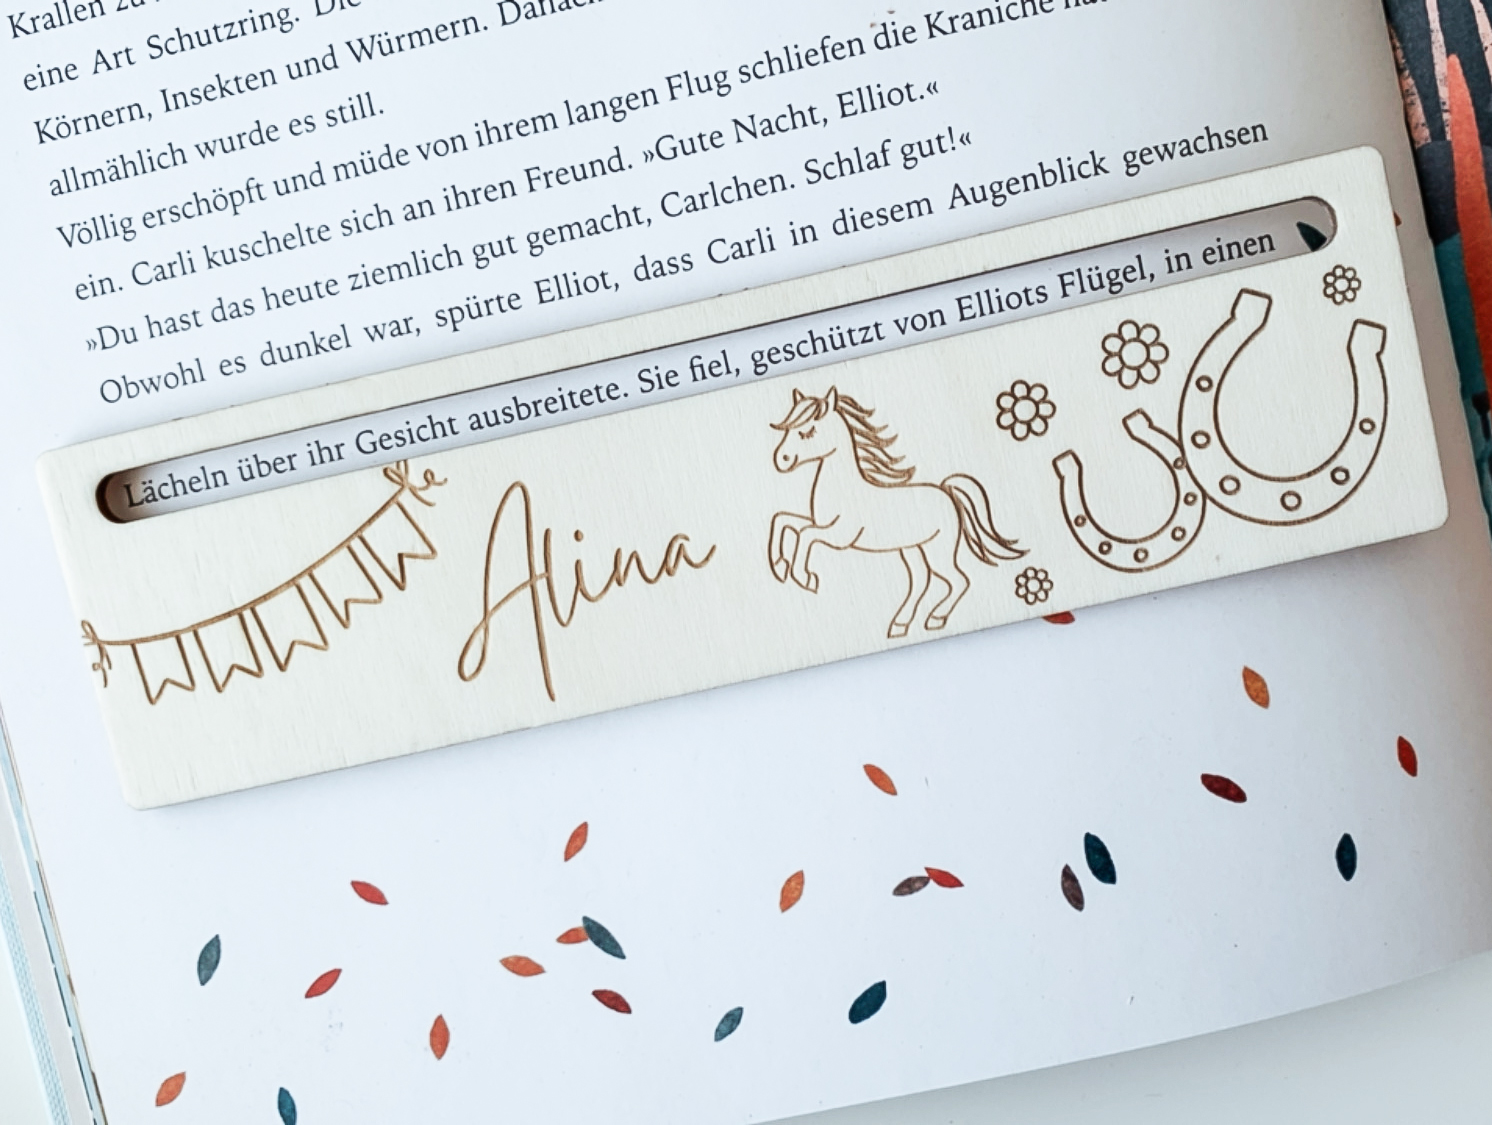 Krallen
eine Art Schutzring. Die
Körnern, Insekten und Würmern. Danach
allmählich wurde es still.
Völlig erschöpft und müde von ihrem langen Flug schliefen die Kraniche
ein. Carli kuschelte sich an ihren Freund. »Gute Nacht, Elliot.«
»Du hast das heute ziemlich gut gemacht, Carlchen. Schlaf gut!«
Obwohl es dunkel war, spürte Elliot, dass Carli in diesem Augenblick gewachsen
Lächeln über ihr Gesicht ausbreitete. Sie fiel, geschützt von Elliots Flügel, in einen
Alina